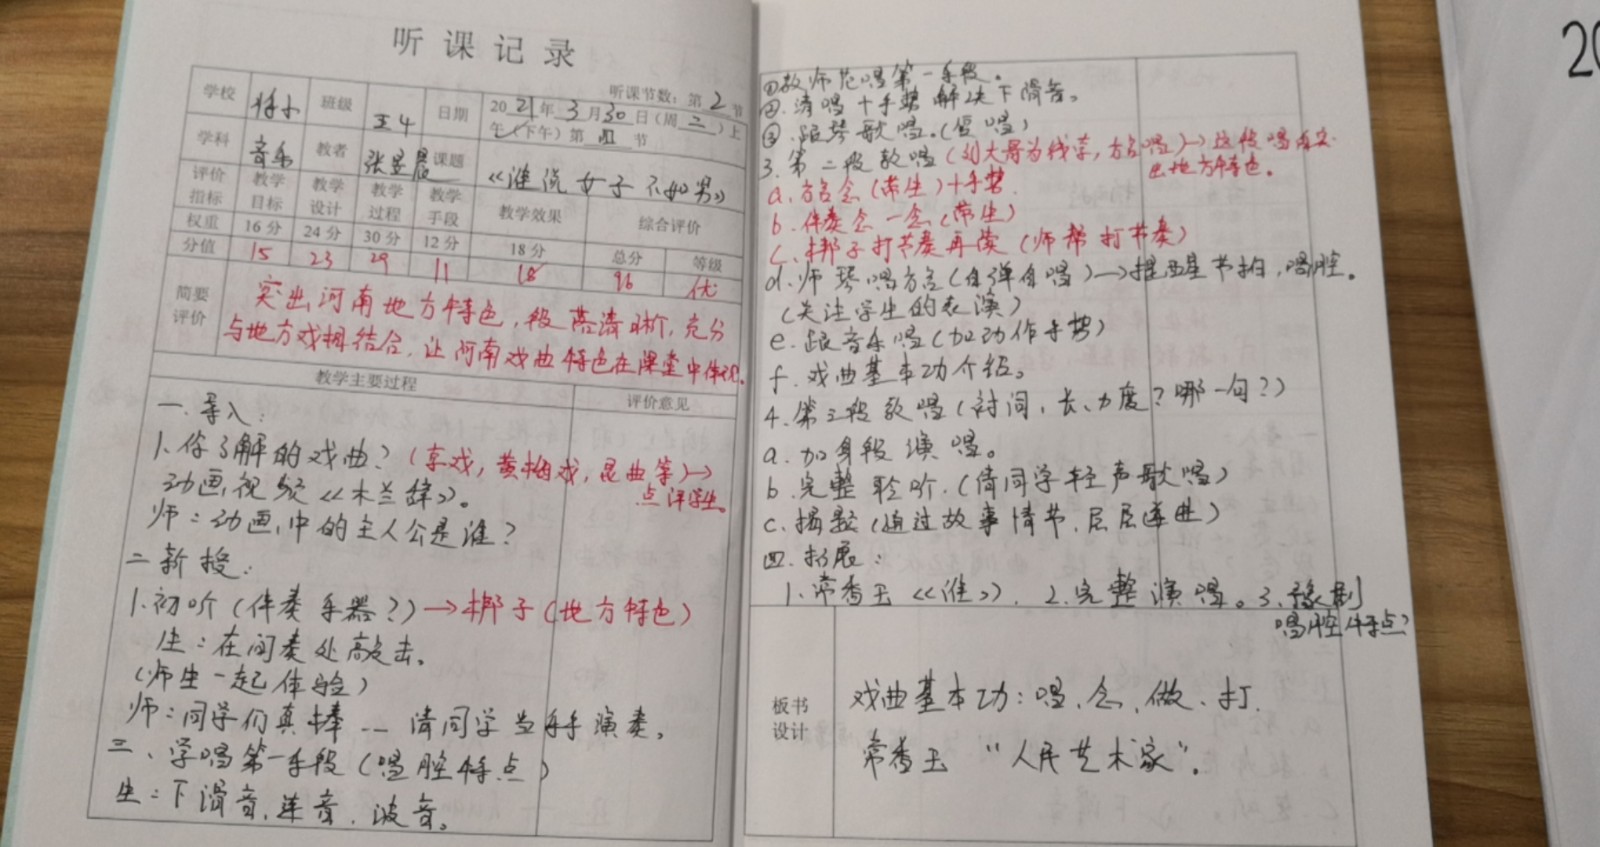 听课记录
听课节数：第2节
学校 班级 五4 日期 2021年3月30日（周二）上
午（下午）第 节
学科 音乐 教者 张昱晨 课题 《谁说女子不如男》
评价指标 教学目标 教学设计 教学过程 教学手段 教学效果 综合评价
权重 16分 24分 30分 12分 18分 总分 等级
分值 15 23 29 11 18 96 优
简要评价 突出河南地方特色，段落清晰，充分
与地方戏相结合，让河南戏曲特色在课堂中体现。
教学主要过程 评价意见
一、导入：
1.你了解的戏曲？（京戏，黄梅戏，昆曲等）→
点评学生。
动画视频《木兰辞》。
师：动画中的主人公是谁？
二新授：
1.初听（伴奏乐器？）→梆子（地方特色）
生：在间奏处敲击。
（师生一起体验）
师：同学们真棒 -- 请同学当乐手演奏。
三、学唱第一乐段（唱腔特点）
生：下滑音，连音，波音。
20
①教师范唱第一乐段。
②.清唱十手势解决下滑音。
③.跟琴歌唱。（慢唱）
3.第二段教唱（刘大哥为线索，方言唱）→这段唱再突
出地方特色。
a.方言念（带生）十手势.
b.伴奏念一念（带生）
c.梆子打节奏再读（师帮打节奏）
d.师琴唱方言（自弹自唱）→提醒节拍，唱腔。
（关注学生的表演）
e.跟音乐唱（加动作手势）
f.戏曲基本功介绍。
4.第三段教唱（衬词，长、力度？哪一句？）
a.加身段演唱。
b.完整聆听.（请同学轻声歌唱）
c.揭题（通过故事情节，层层递进）
四.拓展：
1.常香玉《谁》. 2.完整演唱。3.豫剧
唱腔特点？
板书设计 戏曲基本功：唱、念、做、打.
常香玉 “人民艺术家”.